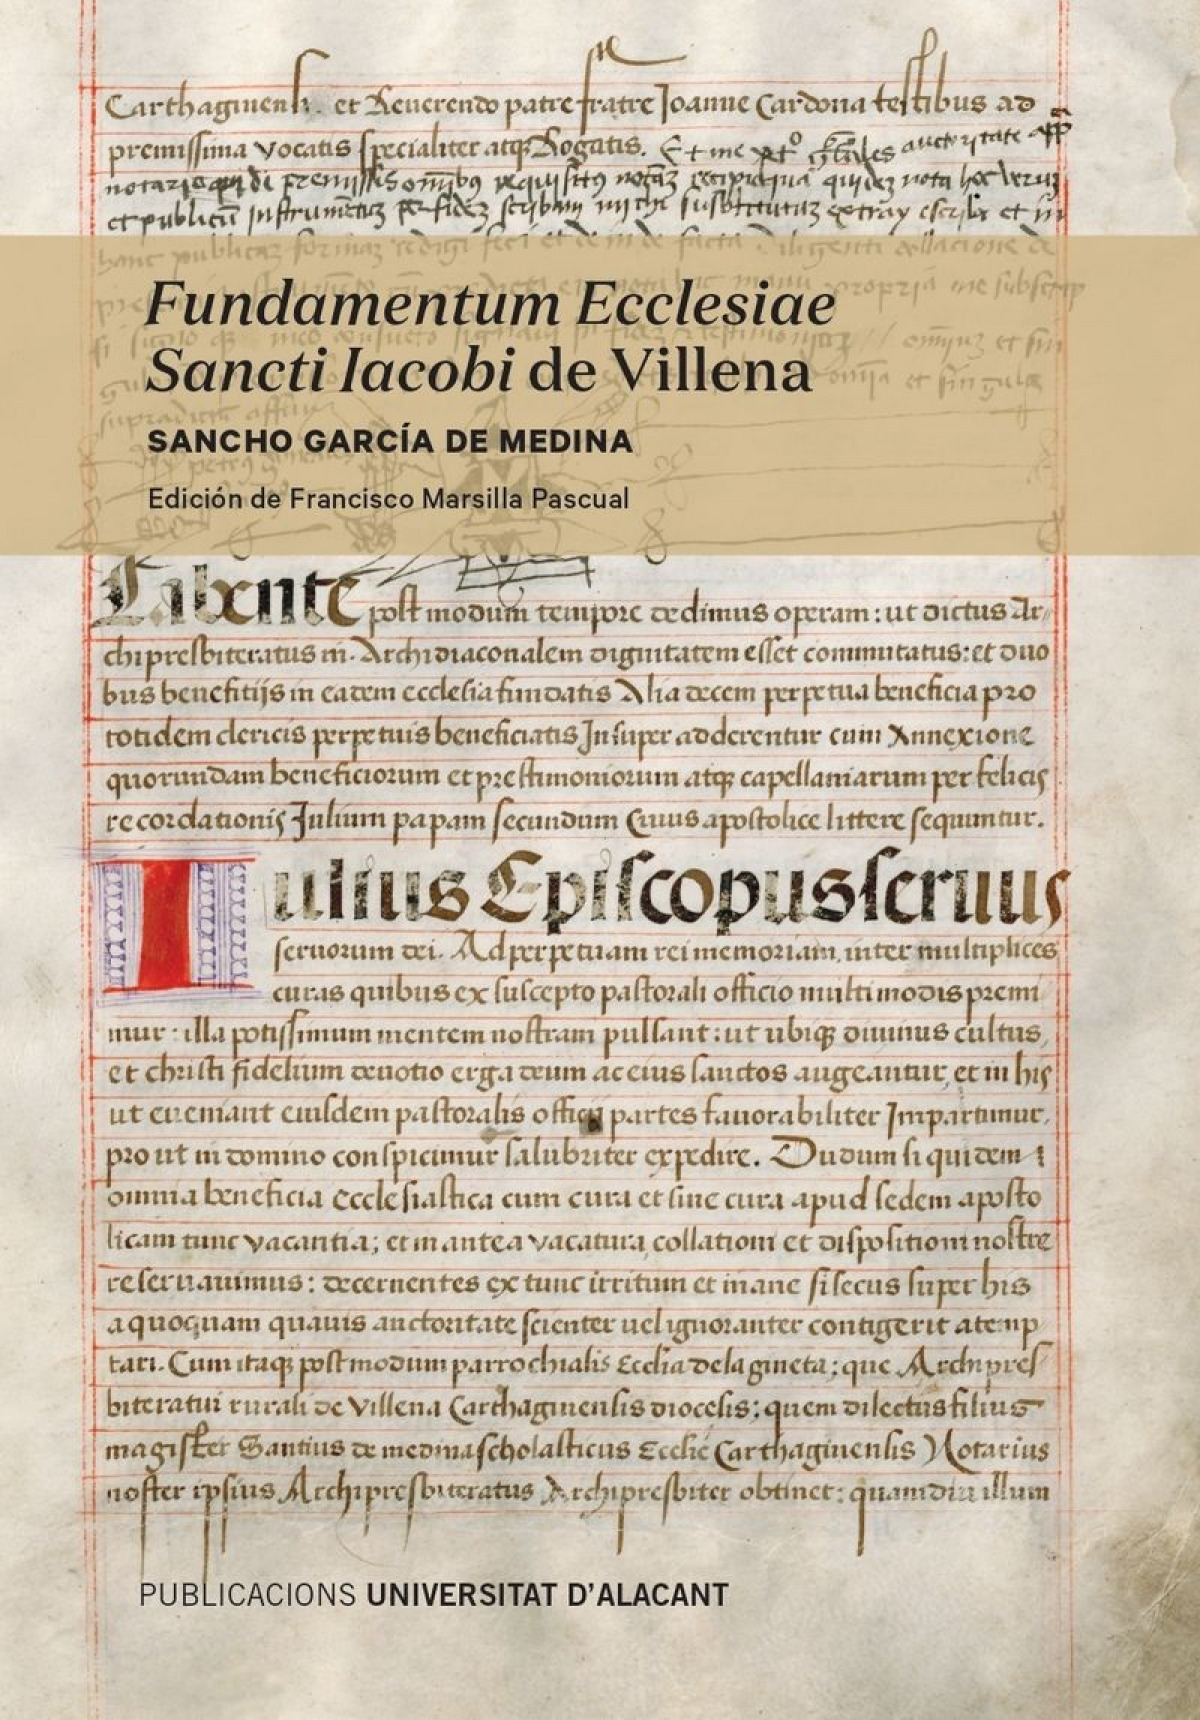 Carthaginensi. et Reuerendo patre fratre Joanne Cardona testibus ad
premissima vocatis specialiter atqꝫ Rogatis. Et me auctoritate
notario
et publicũ
Fundamentum Ecclesiae
Sancti Iacobi de Villena
SANCHO GARCÍA DE MEDINA
Edición de Francisco Marsilla Pascual
Labente post modum tempore dedimus operam: ut dictus Ar-
chipresbiteratus in Archidiaconalem dignitatem esset commutatus: et duo
bus benefitijs in eadem ecclesia fundatis Alia decem perpetua beneficia pro
totidem clericis perpetuis beneficiatis Insuper adderentur cum Annexione
quorundam beneficiorum et prestimoniorum atqꝫ capellaniarum per felicis
recordationis Julium papam secundum Cuius apostolice littere sequuntur.
Iulius Episcopus seruus
seruorum dei. Ad perpetuam rei memoriam. inter multiplices
curas quibus ex suscepto pastorali officio multimodis premi
mur: illa potissimum mentem nostram pulsant: ut ubiqꝫ diuinus cultus,
et christi fidelium deuotio erga deum ac eius sanctos augeantur, et in his
ut eueniant eiusdem pastoralis officij partes fauorabiliter Impartimur,
prout in domino conspicimus salubriter expedire. Dudum siquidem
omnia beneficia ecclesiastica cum cura et sine cura apud sedem aposto
licam tunc vacantia; et in antea vacatura, collationi et dispositioni nostre
reseruauimus: decernentes ex tunc irritum et inane si secus super his
a quoquam quauis auctoritate scienter uel ignoranter contigerit atemp
tari. Cum itaqꝫ postmodum parrochialis Ecclia de la gineta; que Archipres
biteratui rurali de Villena Carthaginensis diocesis; quem dilectus filius
magister Santius de medina scholasticus Ecclie Carthaginensis Notarius
noster ipsius Archipresbiteratus Archipresbiter obtinet: quamdiu illum
PUBLICACIONS UNIVERSITAT D'ALACANT